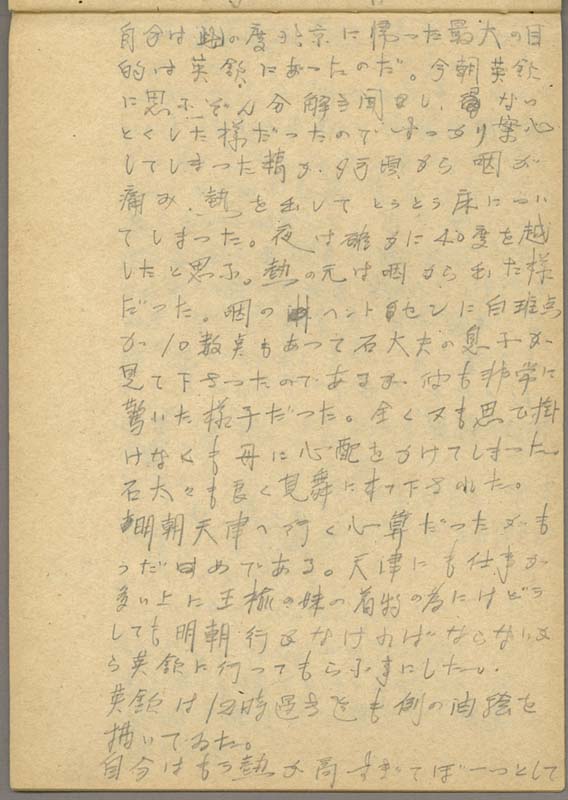 自分は此の度北京に帰った最大の目
的は英領にあったのだ。今朝英領
に思ふぞん分解き聞せし、なっ
とくした様だったのですっかり案心
してしまった積が、夕方頃から咽が
痛み、熱を出してとうとう床につい
てしまった。夜は確かに40度を越
したと思ふ。熱の元は咽から出た様
だった。咽のヘントセンに白斑点
が10数点もあって石大夫の息子が
見て下さったのであるが、彼も非常に
驚いた様子だった。全く又も思ひ掛
けなくも母に心配をかけてしまった。
石太々も良く見舞に来て下された。
明朝天津へ行く心算だったがも
うだめである。天津にも仕事が
多い上に王の妹の着物の為にはどう
しても明朝行かなければならないか
ら英領に行ってもらふ事にしたい。
英領は12時過ぎ迄も例の油絵を
描いてゐた。
自分はもう熱が高すぎてぼーっとして